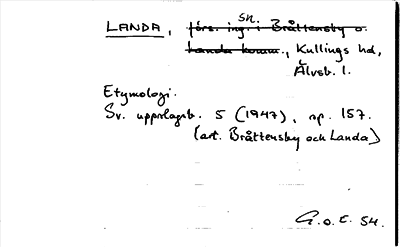 LANDA, förs. ing. i Bråttensby o. sn.
Landa komm., Kullings hd,
Älvsb. l.
Etymologi.
Sv. uppslagsb. 5 (1947), sp. 157.
(art. Bråttensby och Landa)
G. o. E. 54.